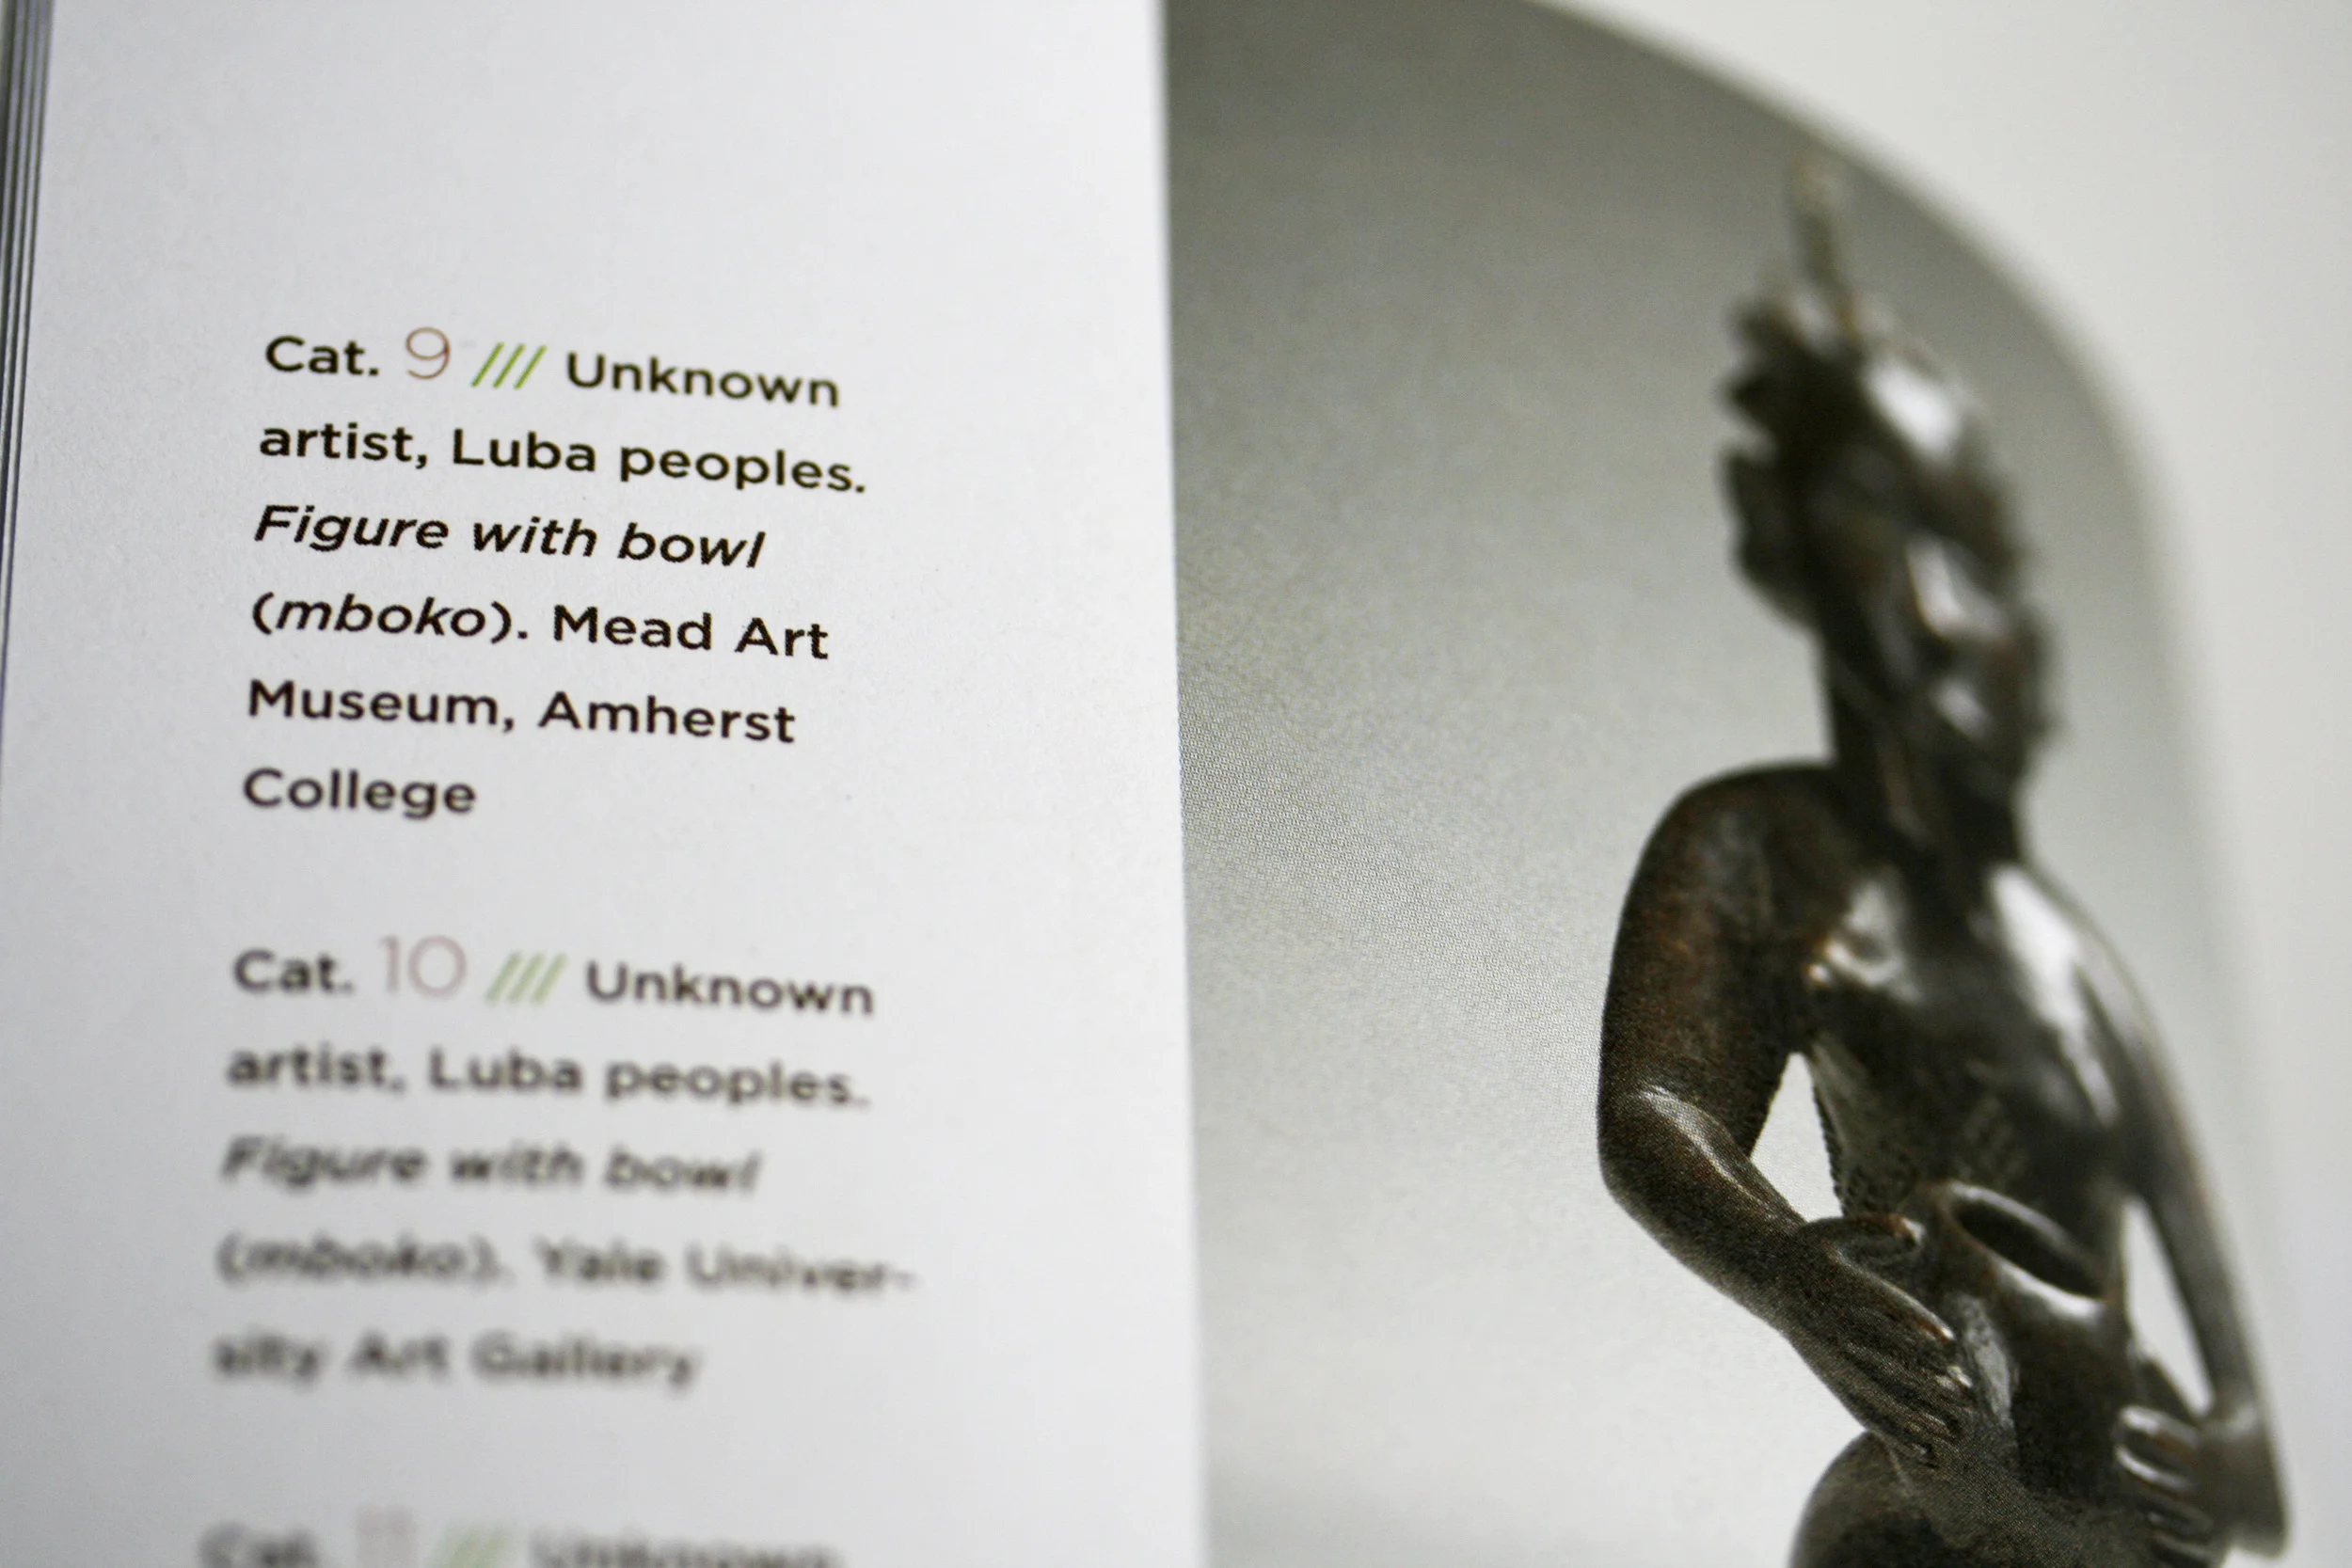 Cat. 9 /// Unknown
artist, Luba peoples.
Figure with bowl
(mboko). Mead Art
Museum, Amherst
College
Cat. 10 /// Unknown
artist, Luba peoples.
Figure with bowl
(mboko). Yale Univer-
sity Art Gallery
Cat. 11 /// Unknown